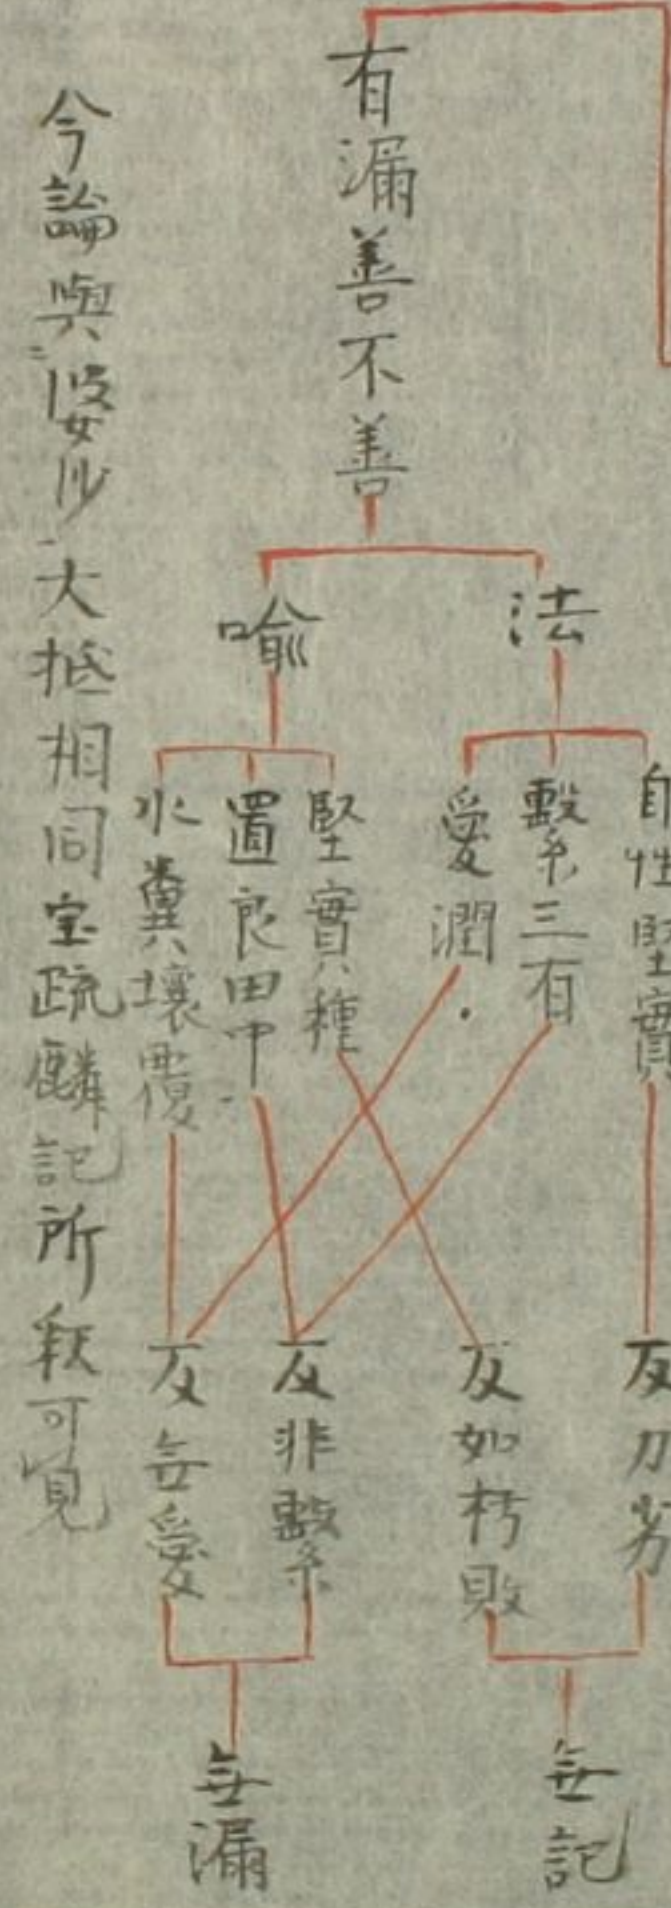 有漏善不善
法
喻
自性堅實
繫三有
愛潤
堅實種
置良田中
水糞壤覆
反力劣
反如朽敗
反非繫
反無愛
無記
無漏
今論與婆沙大抵相同宝疏麟記所釈可見